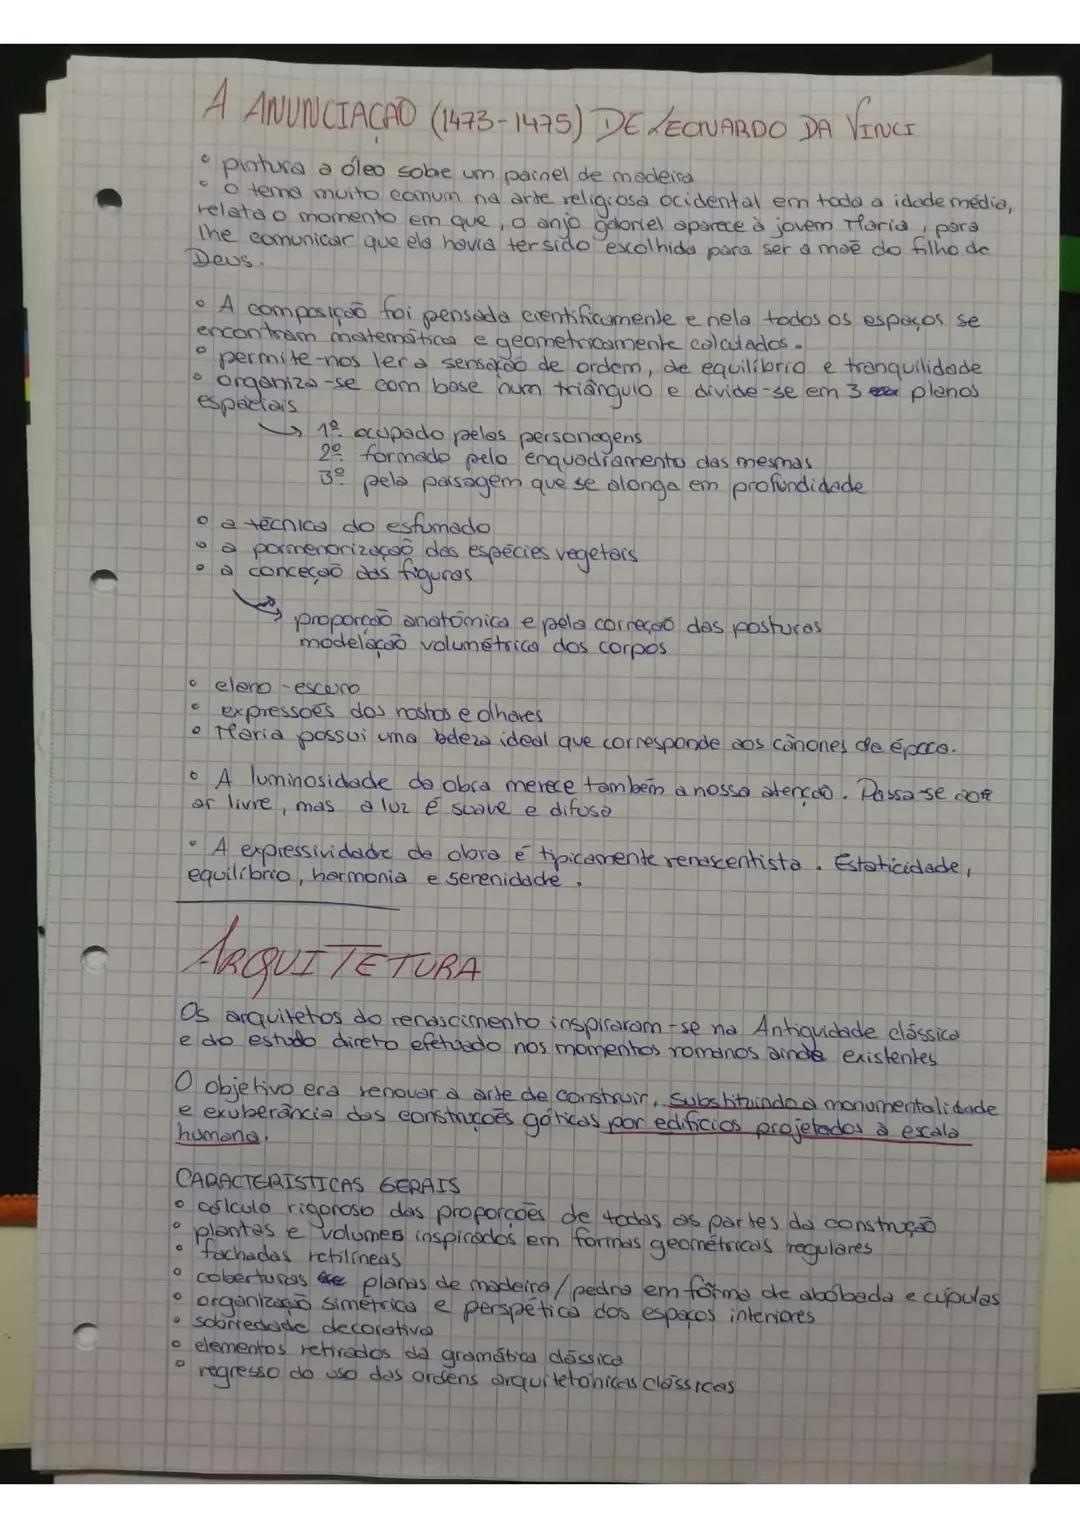 A ANUNCIAÇÃO (1473-1475) DE LEONARDO DA VINCI
• pintura a óleo sobe um painel de madeira
• o tema muito comum na arte religiosa ocidental em toda a idade média,
relata o momento em que, o anjo gabriel aparece à jovem Maria, para
lhe comunicar que ela havia ter sido escolhida para ser a mãe do filho de
Deus.
• A composição foi pensada cientificamente e nela todos os espaços se
encontram matemática e geometricamente calculados.
• permite-nos ler a sensação de ordem, de equilíbrio e tranquilidade
• organiza-se com base num triângulo e divide-se em 3 planos
espaciais
↳ 1º ocupado pelas personagens
2º formado pelo enquadramento das mesmas
3º pela paisagem que se alonga em profundidade
• a técnica do esfumado
• a pormenorização das espécies vegetais
• a conceção das figuras
↳ proporção anatómica e pela correção das posturas
modelação volumétrica dos corpos
• claro-escuro
• expressões dos rostos e olhares
• Maria possui uma beleza ideal que corresponde aos cânones da época.
• A luminosidade da obra merece também a nossa atenção. Passa-se ao
ar livre, mas a luz é suave e difusa
• A expressividade da obra é tipicamente renascentista. Estaticidade,
equilíbrio, harmonia e serenidade.
ARQUITETURA
Os arquitetos do renascimento inspiraram-se na Antiguidade clássica
e do estudo direto efetuado nos momentos romanos ainda existentes
O objetivo era renovar a arte de construir, substituindo a monumentalidade
e exuberância das construções góticas por edifícios projetados à escala
humana.
CARACTERISTICAS GERAIS
• cálculo rigoroso das proporções de todas as partes da construção
• plantas e volumes inspirados em formas geométricas regulares
• fachadas retilíneas
• coberturas planas de madeira/pedra em forma de abóbada e cúpulas
• organização simétrica e perspética dos espaços interiores
• sobriedade decorativa
• elementos retirados da gramática clássica
• regresso do uso das ordens arquitetónicas clássicas